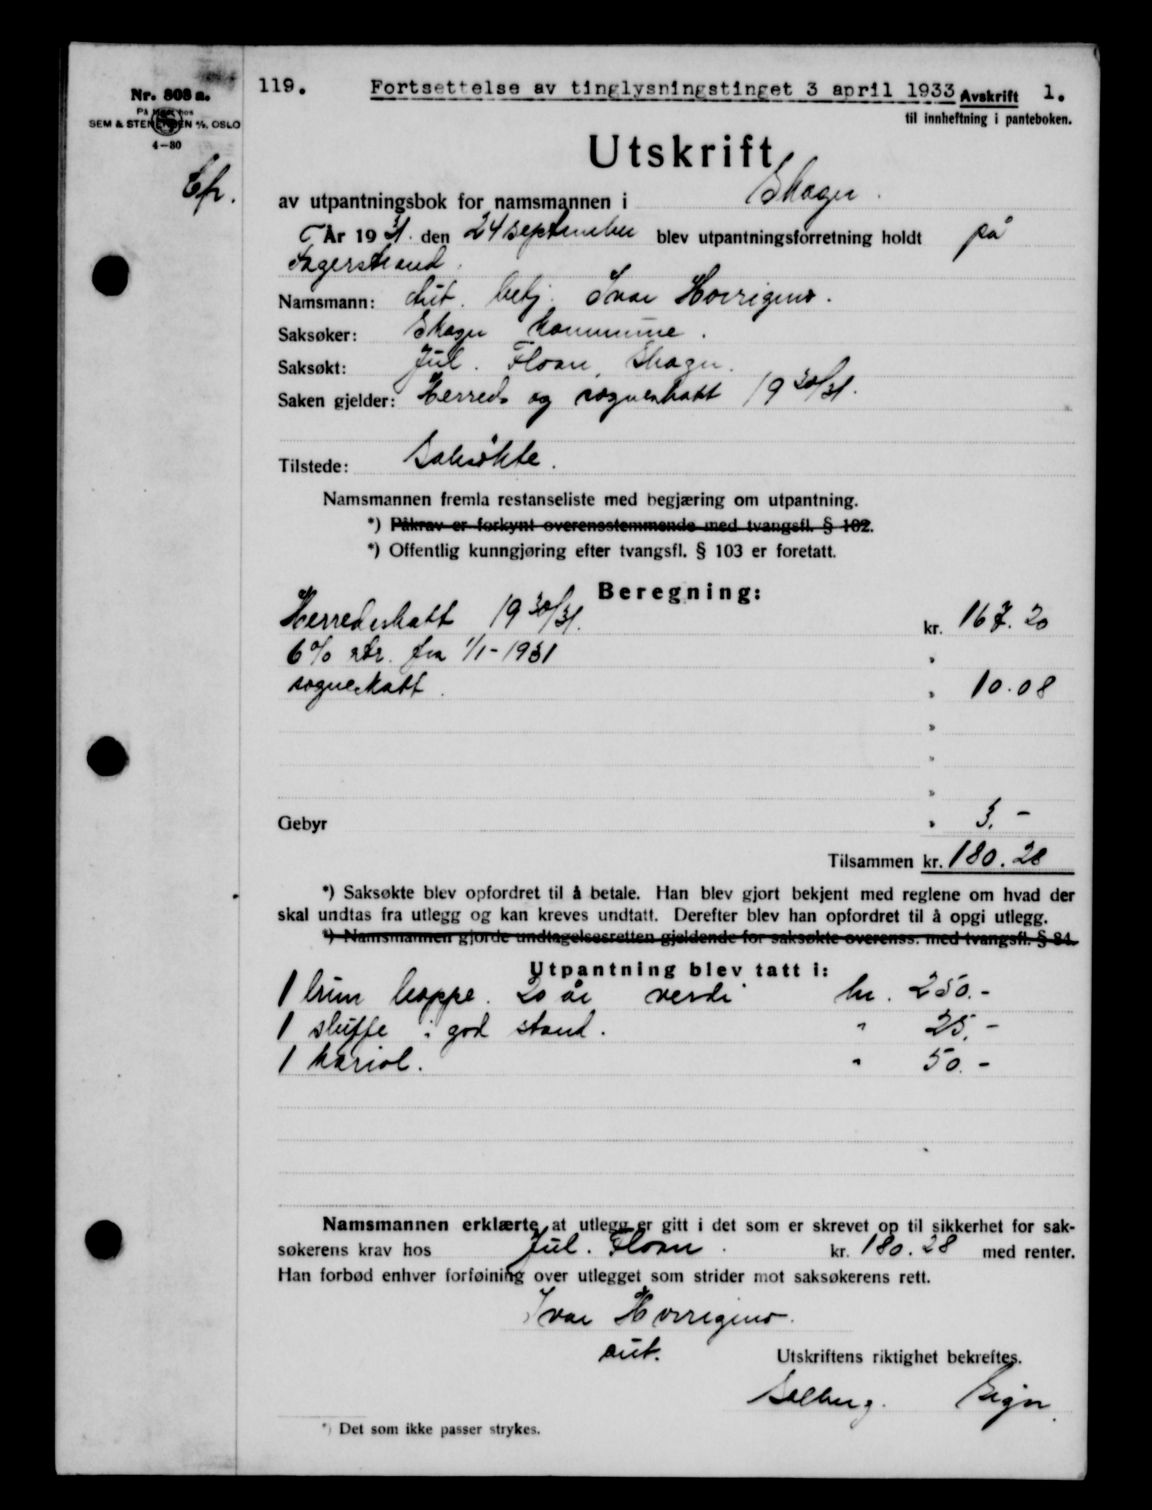 Nr. 808 a.
På lager hos
SEM & STENERSEN A/S, OSLO
4—30
119. Fortsettelse av tinglysningstinget 3 april 1933 Avskrift 1.
til innheftning i panteboken.
Utskrift
av utpantningsbok for namsmannen i Skoger.
År 1931. den 24 september blev utpantningsforretning holdt på
Fagerstrand.
Namsmann: aut. betj. Ivar Horrigmo.
Saksøker: Skoger kommune.
Saksøkt: Jul. Floan, Skoger.
Saken gjelder: Herreds og sogneskatt 19 30/31.
Tilstede: Saksøkte.
Namsmannen fremla restanseliste med begjæring om utpantning.
*) Påkrav er forkynt overensstemmende med tvangsfl. § 102.
*) Offentlig kunngjøring efter tvangsfl. § 103 er foretatt.
Beregning:
Herredsskatt 19 30/31. kr. 167.20
6% rtr. fra 1/1-1931 "
sogneskatt. " 10.08
"
"
"
Gebyr " 3.-
Tilsammen kr. 180.28
*) Saksøkte blev opfordret til å betale. Han blev gjort bekjent med reglene om hvad der
skal undtas fra utlegg og kan kreves undtatt. Derefter blev han opfordret til å opgi utlegg.
*) Namsmannen gjorde undtagelsesretten gjeldende for saksøkte overenss. med tvangsfl. § 84.
Utpantning blev tatt i:
1 brun hoppe. 20 år verdi kr. 250.-
1 sluffe i god stand. " 25.-
1 kariol. " 50.-
Namsmannen erklærte at utlegg er gitt i det som er skrevet op til sikkerhet for sak-
søkerens krav hos Jul. Floan. kr. 180.28 med renter.
Han forbød enhver forføining over utlegget som strider mot saksøkerens rett.
Ivar Horrigmo.
aut.
Utskriftens riktighet bekreftes.
Solberg. Sign.
*) Det som ikke passer strykes.